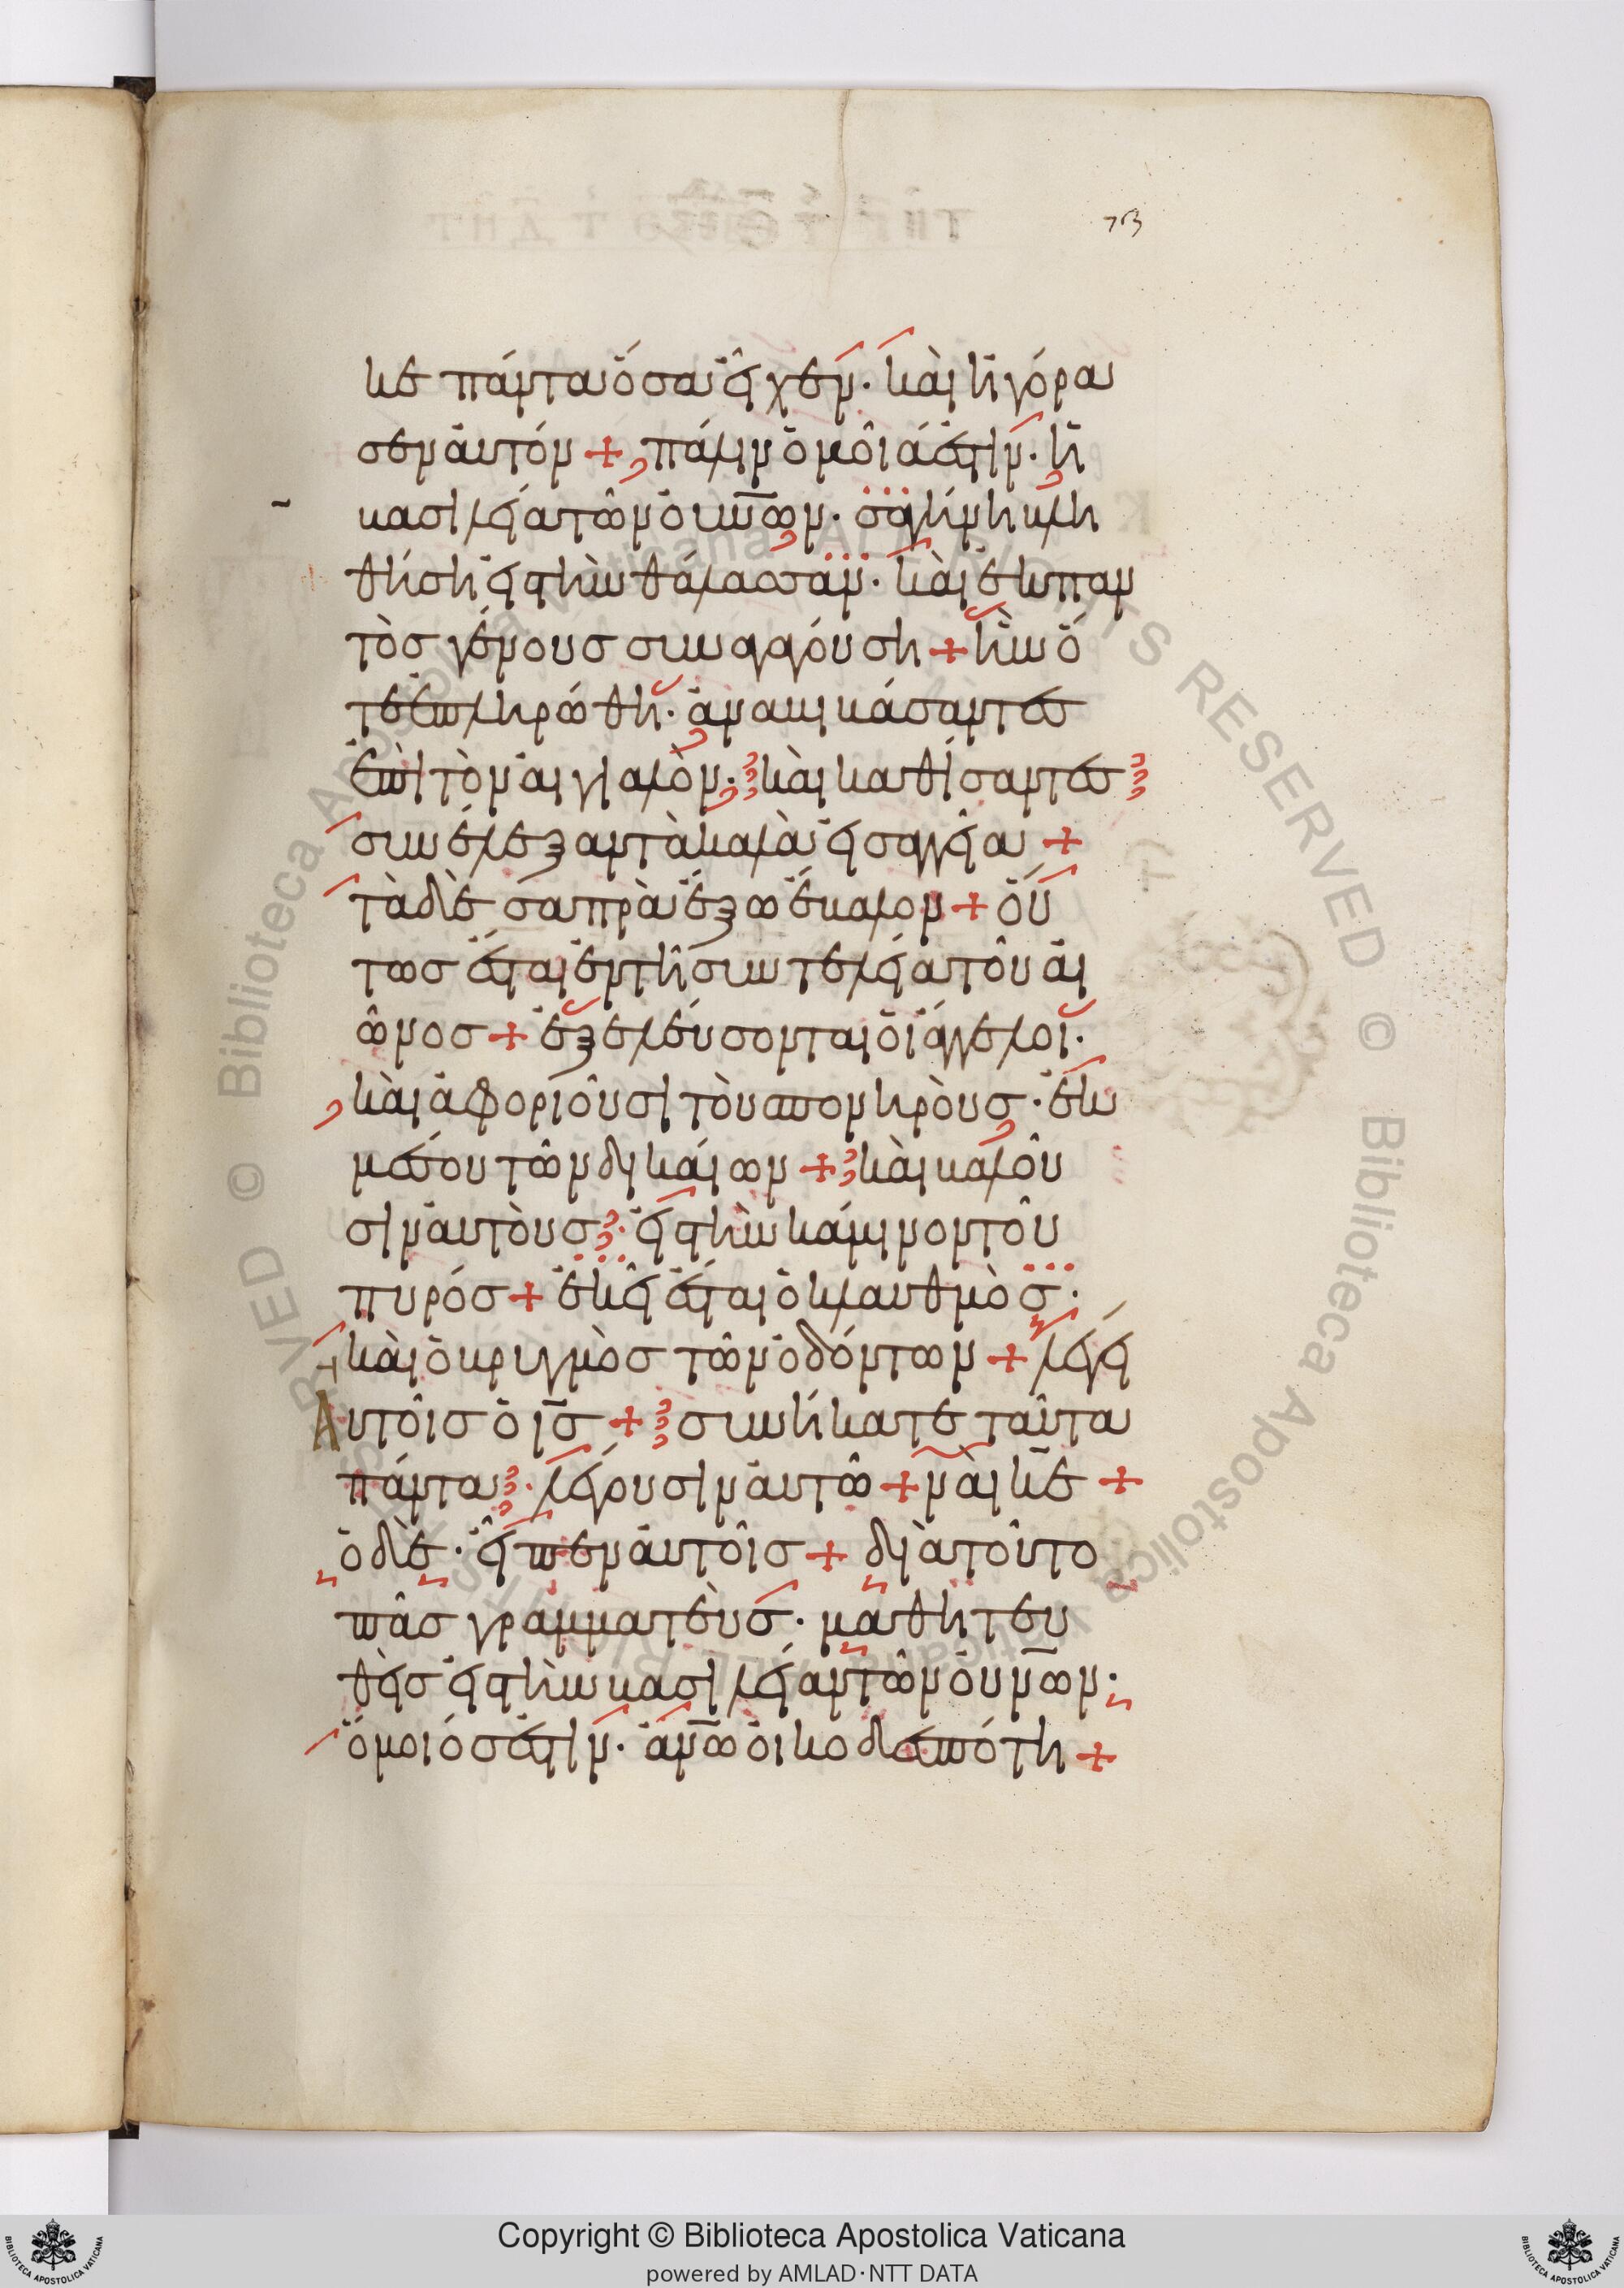 753
κε πάντα ὅσα εἶχεν· καὶ ἠγόρα
σεν αὐτόν + πάλιν ὁμοία ἐστὶν· ἡ
βασιλεία τῶν οὐν̅ω̅ν· σαγήνη βλη
θήση εἰς τὴν θάλασσαν· καὶ ἐκ παν
τὸς γένους συναγαγούση + ἣν ὅ
τε ἐπληρώθη· ἀναβιβάσαντες
ἐπὶ τὸν αἰγιαλὸν· καὶ καθίσαντες
συνέλεξαν τὰ καλὰ εἰς ἀγγεῖα +
τὰ δὲ σαπρὰ ἔξω ἔβαλον + οὕ
τως ἔσται ἐν τῆ συντελεία τοῦ αἰ
ῶνος + ἐξελεύσονται οἱ ἄγγελοι·
καὶ ἀφοριοῦσι τοὺς πονηροὺς· ἐκ
μέσου τῶν δικαίων + καὶ βαλοῦ
σιν αὐτοὺς· εἰς τὴν κάμινον τοῦ
πυρός + ἐκεῖ ἔσται ὁ κλαυθμὸς·
καὶ ὁ βρυγμὸς τῶν ὀδόντων + λέγει
Αὐτοῖς ὁ ι̅ς̅ + συνήκατε ταῦτα
πάντα· λέγουσιν αὐτῶ + ναὶ κ̅ε̅ +
ὁ δὲ· εἶπεν αὐτοῖς + διὰ τοῦτο
πᾶς γραμματεὺς· μαθητευ
θεὶς εἰς τὴν βασιλείαν τῶν οὐν̅ω̅ν·
ὅμοιός ἐστιν· ἀν̅ω̅ οἰκοδεσπότη +
Copyright © Biblioteca Apostolica Vaticana
powered by AMLAD·NTT DATA